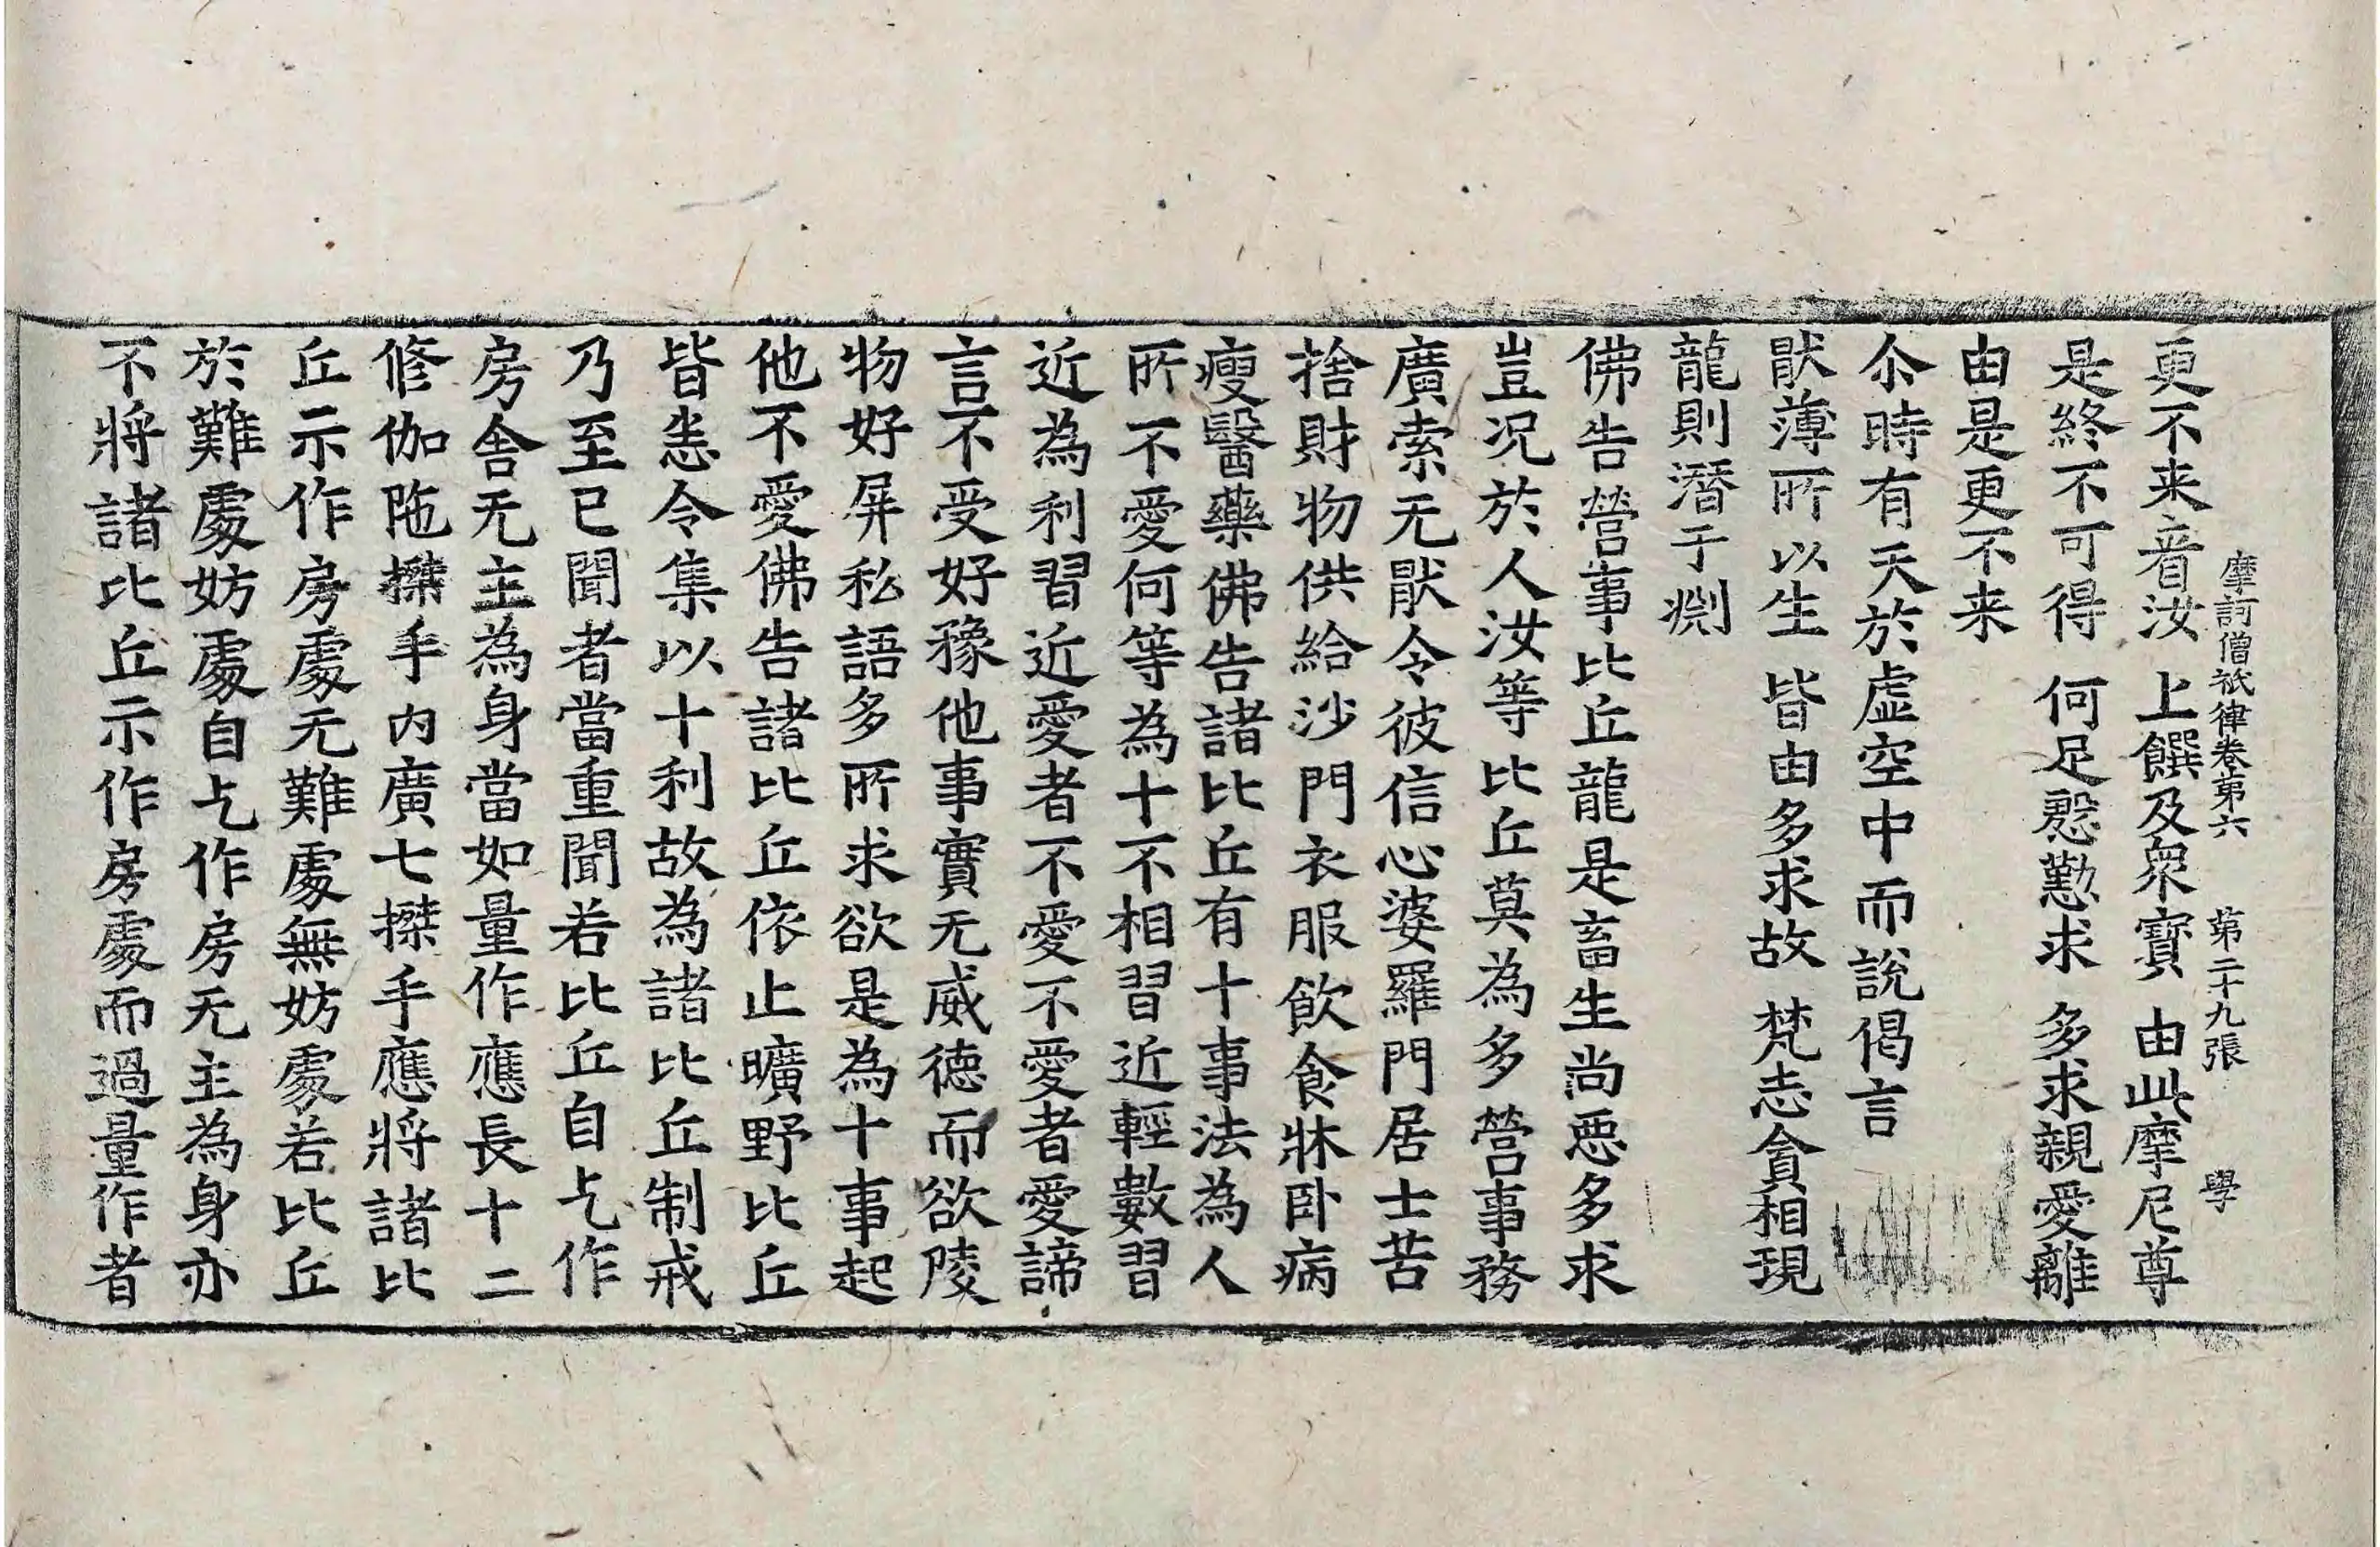 摩訶僧祇律卷第六 第二十九張 學
更不来音汝 上饌及衆寶 由此摩尼尊
是終不可得 何足慇懃求 多求親愛離
由是更不来
尒時有天於虛空中而說偈言
猒薄所以生 皆由多求故 梵志貪相現
龍則潛于渕
佛告營事比丘龍是畜生尚惡多求
豈况於人汝等比丘莫為多營事務
廣索无猒令彼信心婆羅門居士苦
捨財物供給沙門衣服飲食牀卧病
瘦醫藥佛告諸比丘有十事法為人
所不愛何等為十不相習近輕數習
近為利習近愛者不愛不愛者愛諦
言不受好豫他事實无威德而欲陵
物好屏私語多所求欲是為十事起
他不愛佛告諸比丘依止曠野比丘
皆恙令集以十利故為諸比丘制戒
乃至已聞者當重聞若比丘自乞作
房舍无主為身當如量作應長十二
修伽陁搩手内廣七搩手應將諸比
丘示作房處无難處無妨處若比丘
於難處妨處自乞作房无主為身亦
不將諸比丘示作房處而過量作者